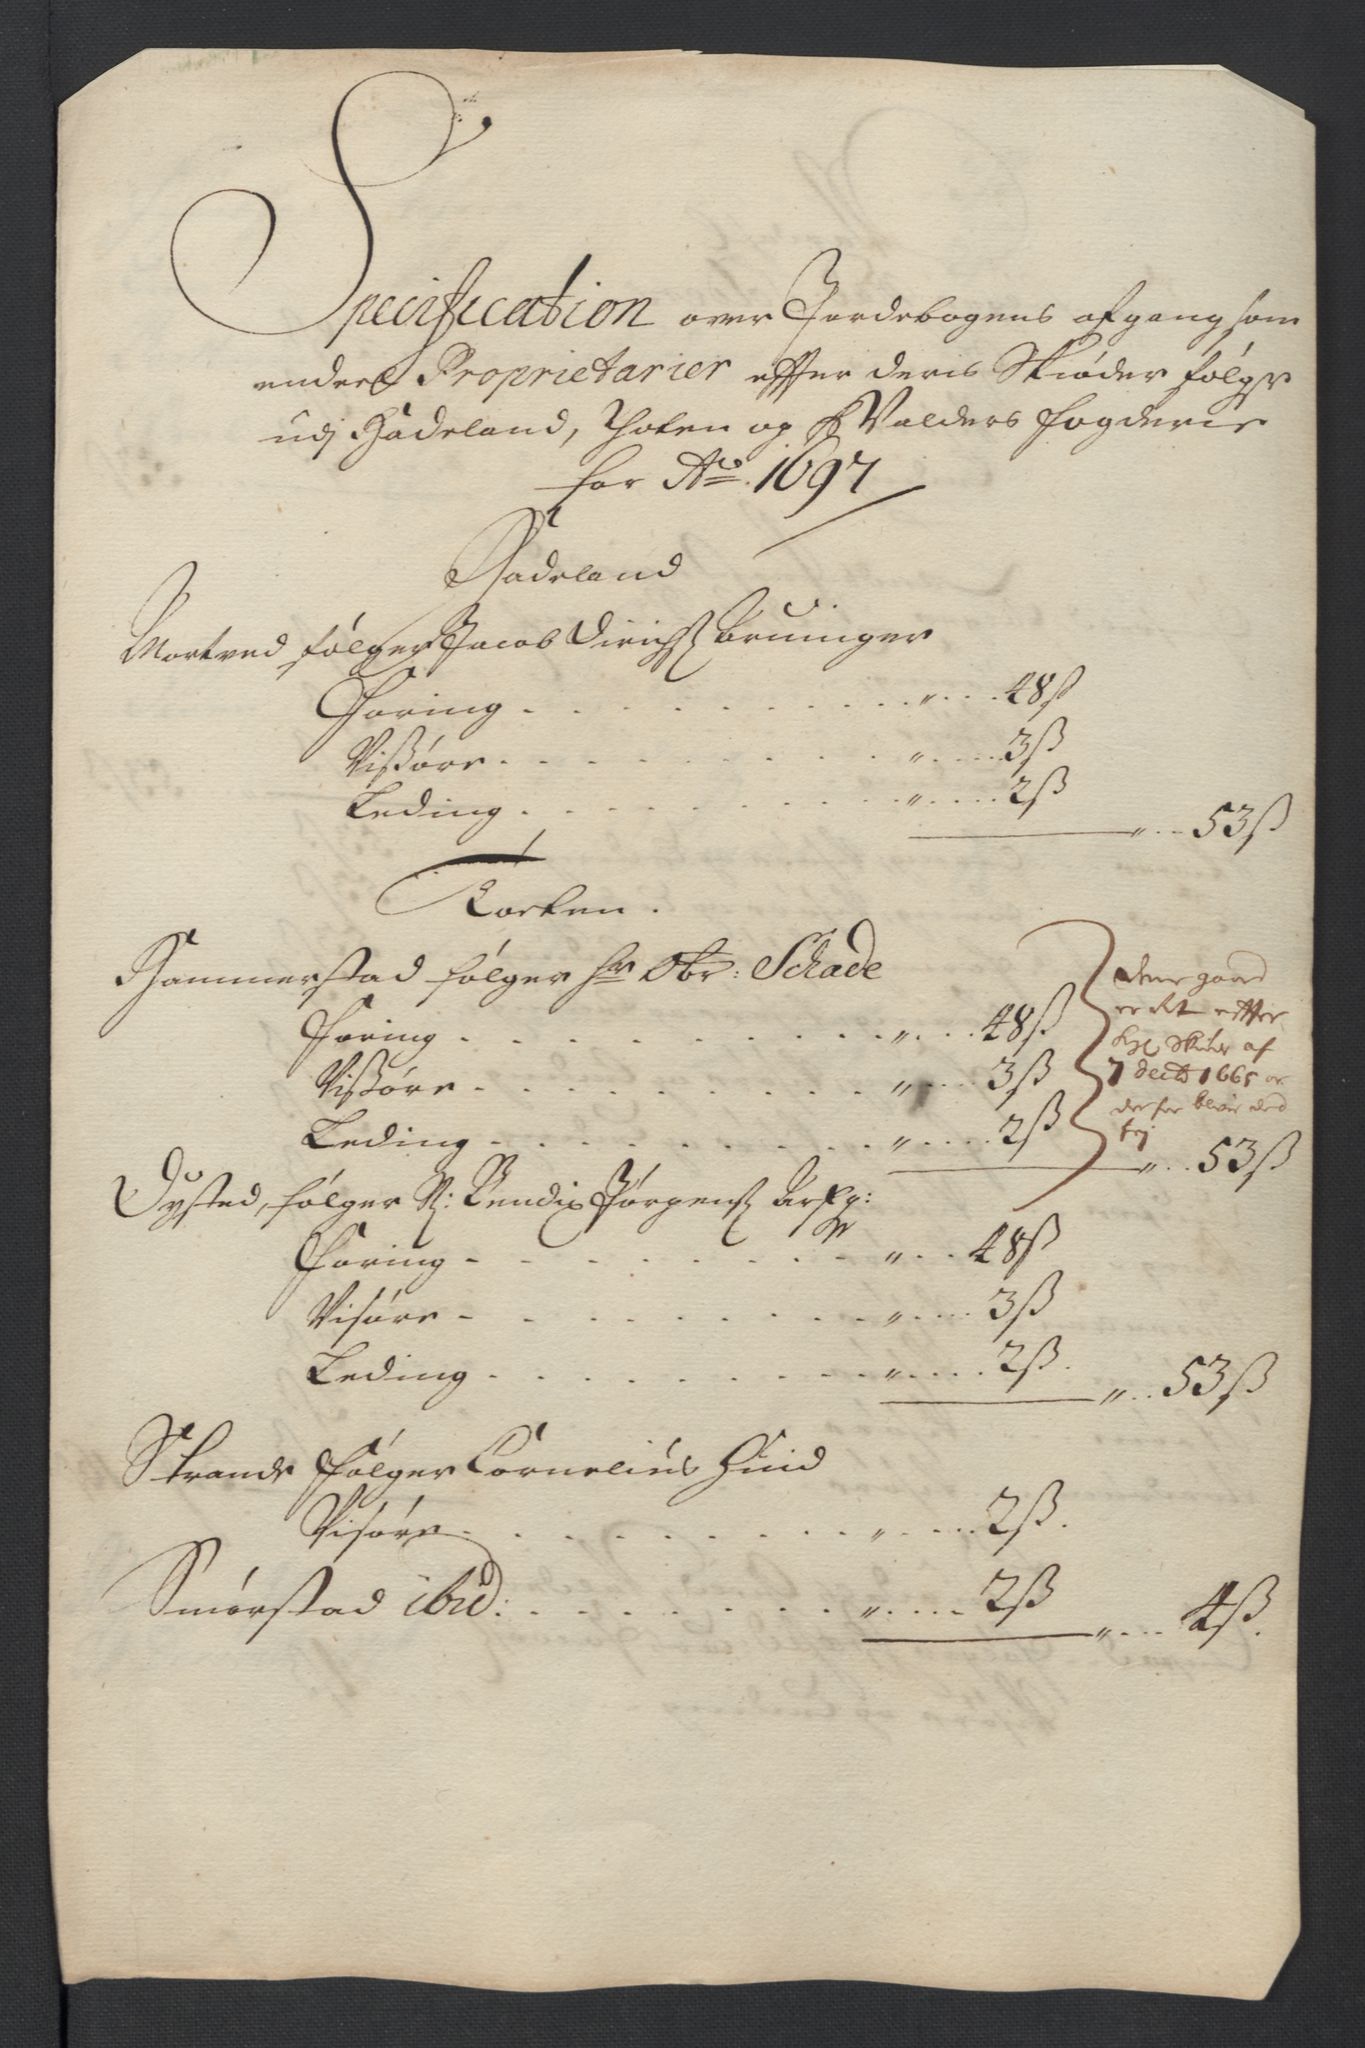 Specification over Jordebogens afgang som
endeel Proprietarier effter deris Skiøder følger
udj Hadeland, Thoten og Valders fogderie
for Ao. 1697
Hadeland
Mortved følger Jacob Dirichs: Bruuinger
Foring . . . . . . . . . . „ . . . 48 ß
Vißøre . . . . . . . . . . „ . . . 3 ß
Leding . . . . . . . . . . „ . . . 2 ß
„ . . 53 ß
Totten.
Hammerstad følger hr Obr: Schade
Foring . . . . . . . . . . „ . . . 48 ß
Vißøre . . . . . . . . . . „ . . . 3 ß
Leding . . . . . . . . . . „ . . . 2 ß
„ . . 53 ß
Denne gaard
er effter
Skiøde af
7 Decb 1665
derfor blever
frj
Dysted, følger Sl: Bendix Jørgens:
Foring . . . . . . . . „ . . 48 ß
Visøre . . . . . . . . „ . . . 3 ß
Leding . . . . . . . . „ . . . 2 ß.
„ . . 53 ß
Strande følger Cornelius Huid
Visøre . . . . . . . . „ . . . 2 ß.
Smørstad ibid: . . . . . . . „ . . . 2 ß
„ . . . 4 ß.